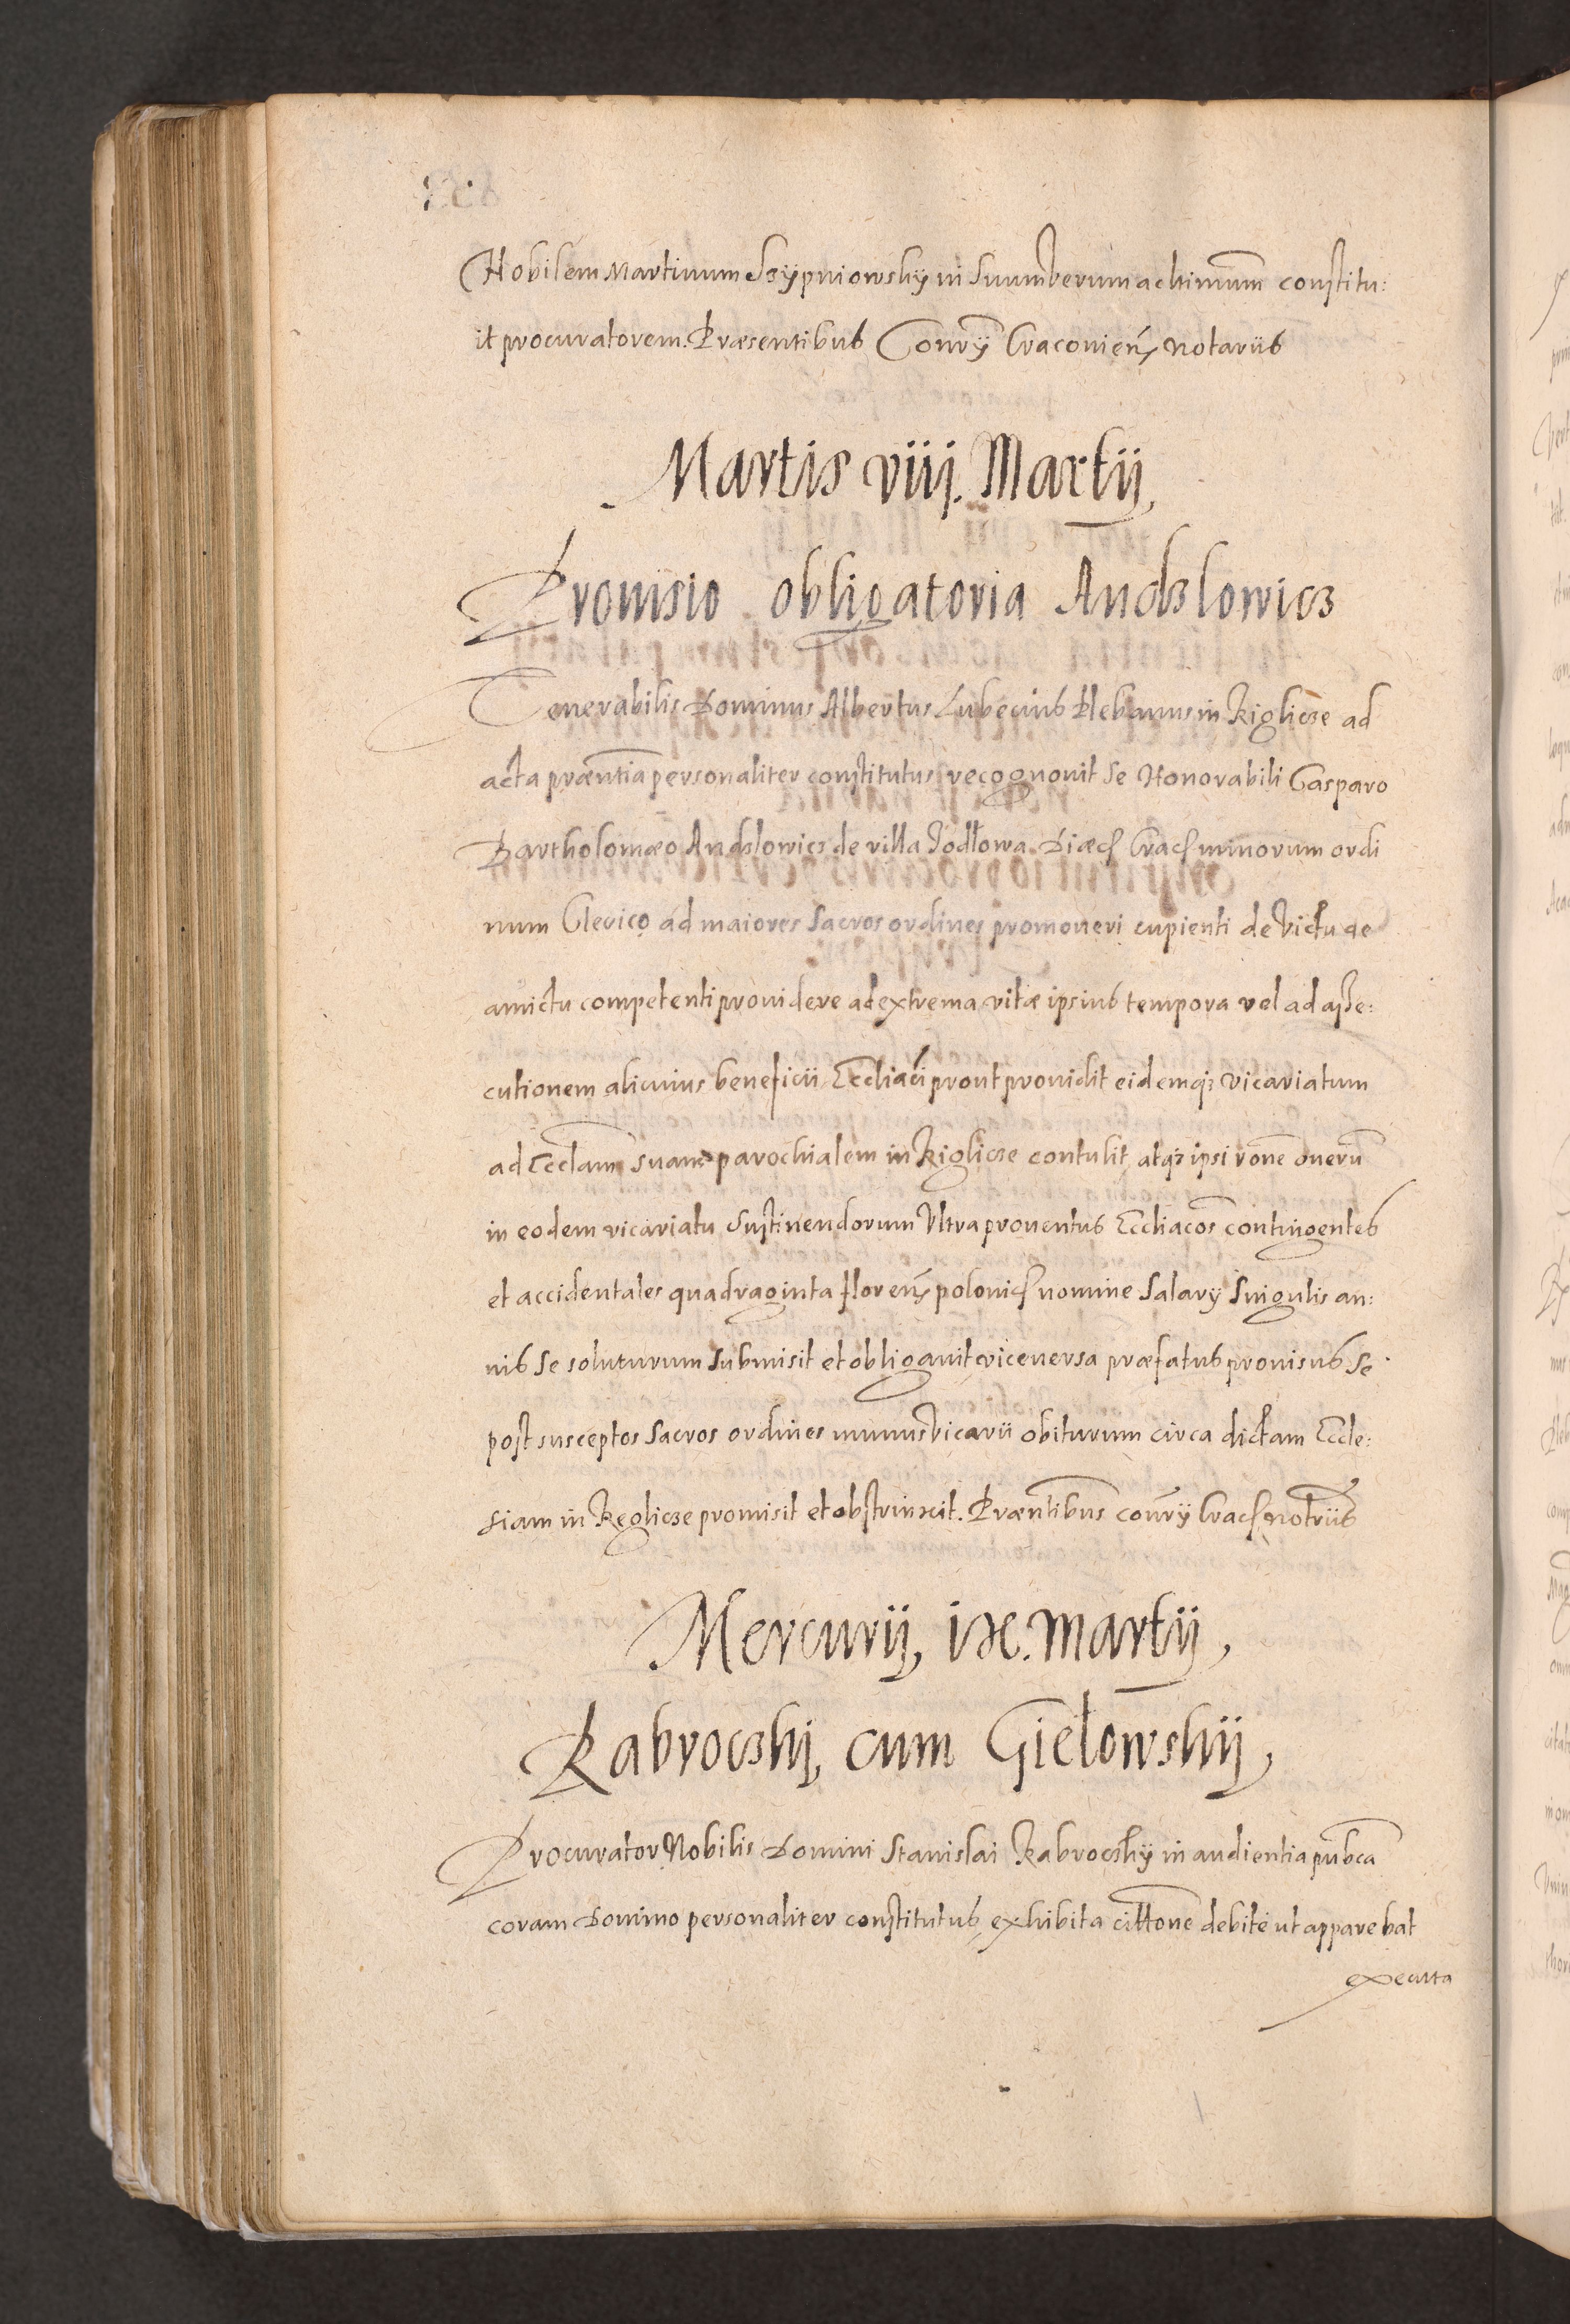 Nobilem Martinum Szÿpniowskÿ in suum verum ac legitimum constitu:
it procuratorem. Præsentibus Consrÿ Cracovien̄ Notariis
Martis viij. Martij,
Provisio obligatoria Andzlowicz
Venerabilis Dominus Albertus Lubecius Plebanus in Riglicze ad
acta præntia personaliter constitutus recognovit se Honorabili Gasparo
Bartholomæo Andzlowicz de villa Jodłowa Diæc Crac minorum ordi
num Clerico ad maiores Sacros ordines promoveri cupienti de victu ac
amictu competenti providere ad extrema vitæ ipsius tempora vel ad asse:
cutionem alicuius beneficii Eccliaci prout providit eidemqz vicariatum
ad Ecclam suam parochialem in Riglicze contulit, atqz ipsi rōne onerū
in eodem vicariatu sustinendorum Ultra proventus Eccliacos contingentes
et accidentales quadraginta floren̄ polonic nomine Salarÿ singulis an:
nis se soluturum submisit et obligavit viceversa præfatus provisus se
post susceptos Sacros ordines munus vicarii obiturum circa dictam Eccle:
siam in Regliczе promisit et obstrinxit. Præntibus consrÿ Crac notriis
Mercurij, ix. Martij,
Rabroczkij, cum Giełowskij,
Procurator Nobilis Domini Stanislai Rabroczkÿ in audientia pubca
coram Domino personaliter constitutus, exhibita cittōne debite ut apparebat
executa